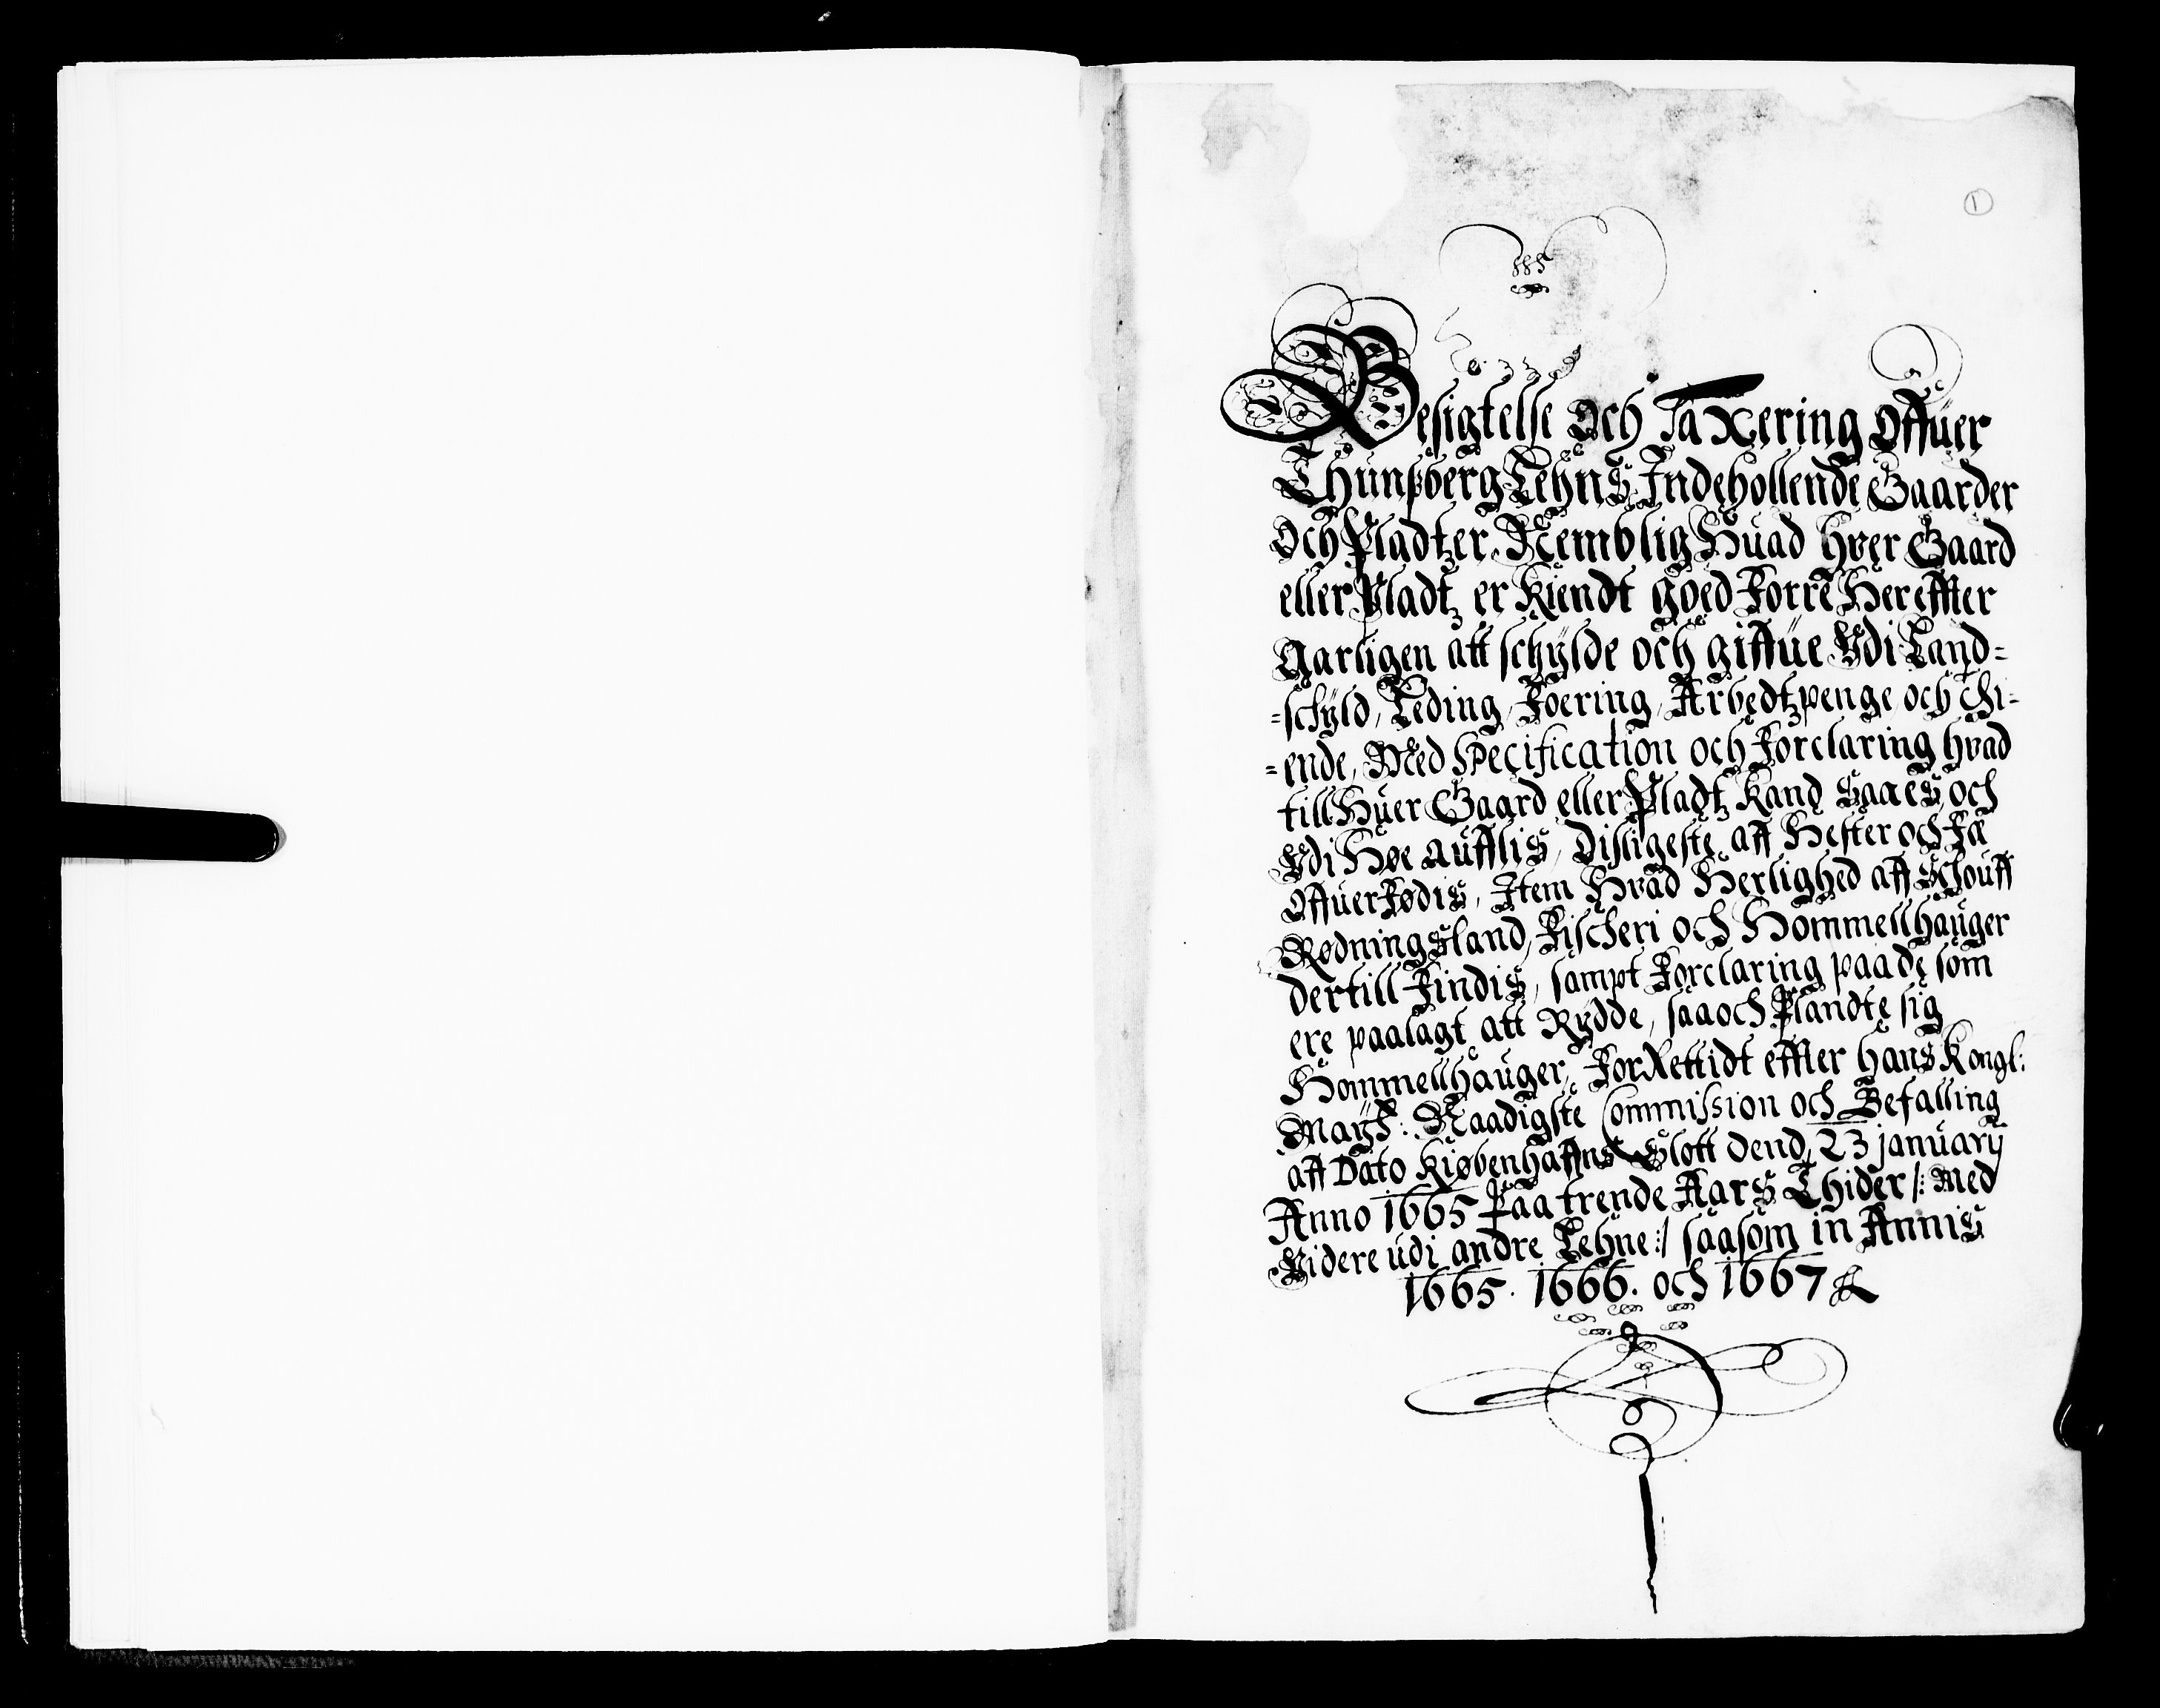 1
Besigtelse Och Taxering Offuer
Thunßberg Lehns Indehollende Gaarder
Och Pladtzer, Nemblig Huad hver Gaard
eller Pladtz er Kiendt goed Forre Hereffter
Aarligen att schylde och giffue Vdi Land=
=schyld, Leding, Foering, Arbedtzpenge, och Thi=
=ende, Med Specification och Forclaring hvad
till Huer Gaard eller Pladtz kand Saaes, och
Vdi Høe aufflis, Disligeste aff Hester och Fæ
Offuer Fødis, Item Hvad Herlighed aff Schouff
Rødningsland, Fischeri och Hommellhauger
dertill Findis, sampt Forclaring paa de som
ere paalagt att Rydde, saa och Plandte sig
Hommellhauger, ForRettidt effter hans Kongl:
Mayts: Naadigste Commission och Befalling
aff Dato Kiøbenhaffns Slott dend 23 january
Anno 1665 Paa trende Aars Thider /: Med
Videre udi andre Lehne :/ saasom in Annis
1665. 1666. och 1667